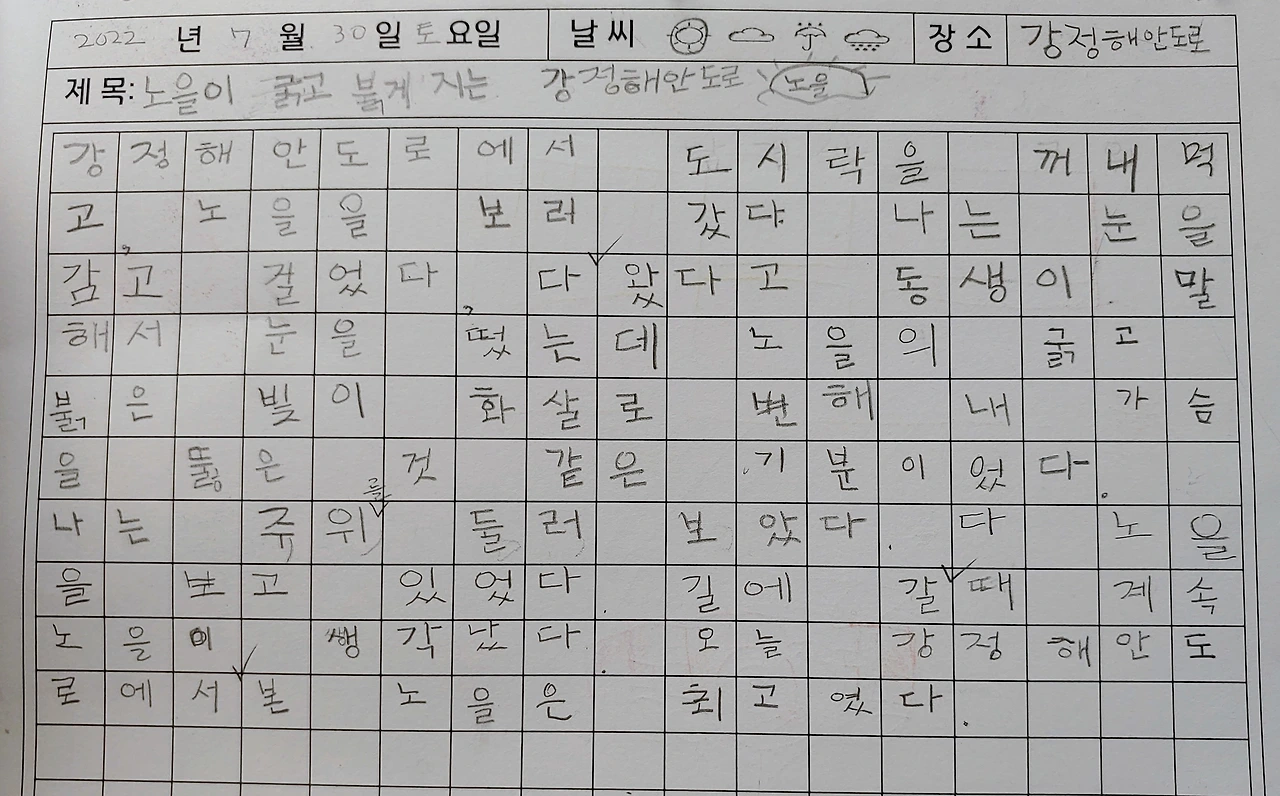 2022 년 7 월 30 일 토요일 날씨 장소 강정해안도로
제목: 노을이 굵고 붉게 지는 강정해안도로 노을
강정해안도로에서 도시락을 꺼내먹
고 노을을 보러 갔다 나는 눈을
감고, 걸었다 다 왔다고 동생이 말
해서 눈을 떴는데 노을의 굵고
붉은 빛이 화살로 변해 내 가슴
을 뚫은 것 같은 기분이었다.
나는 주위를 둘러보았다. 다 노을
을 보고 있었다. 길에 갈 때 계속
노을이 쌩각났다. 오늘 강정해안도
로에서 본 노을은 최고였다.